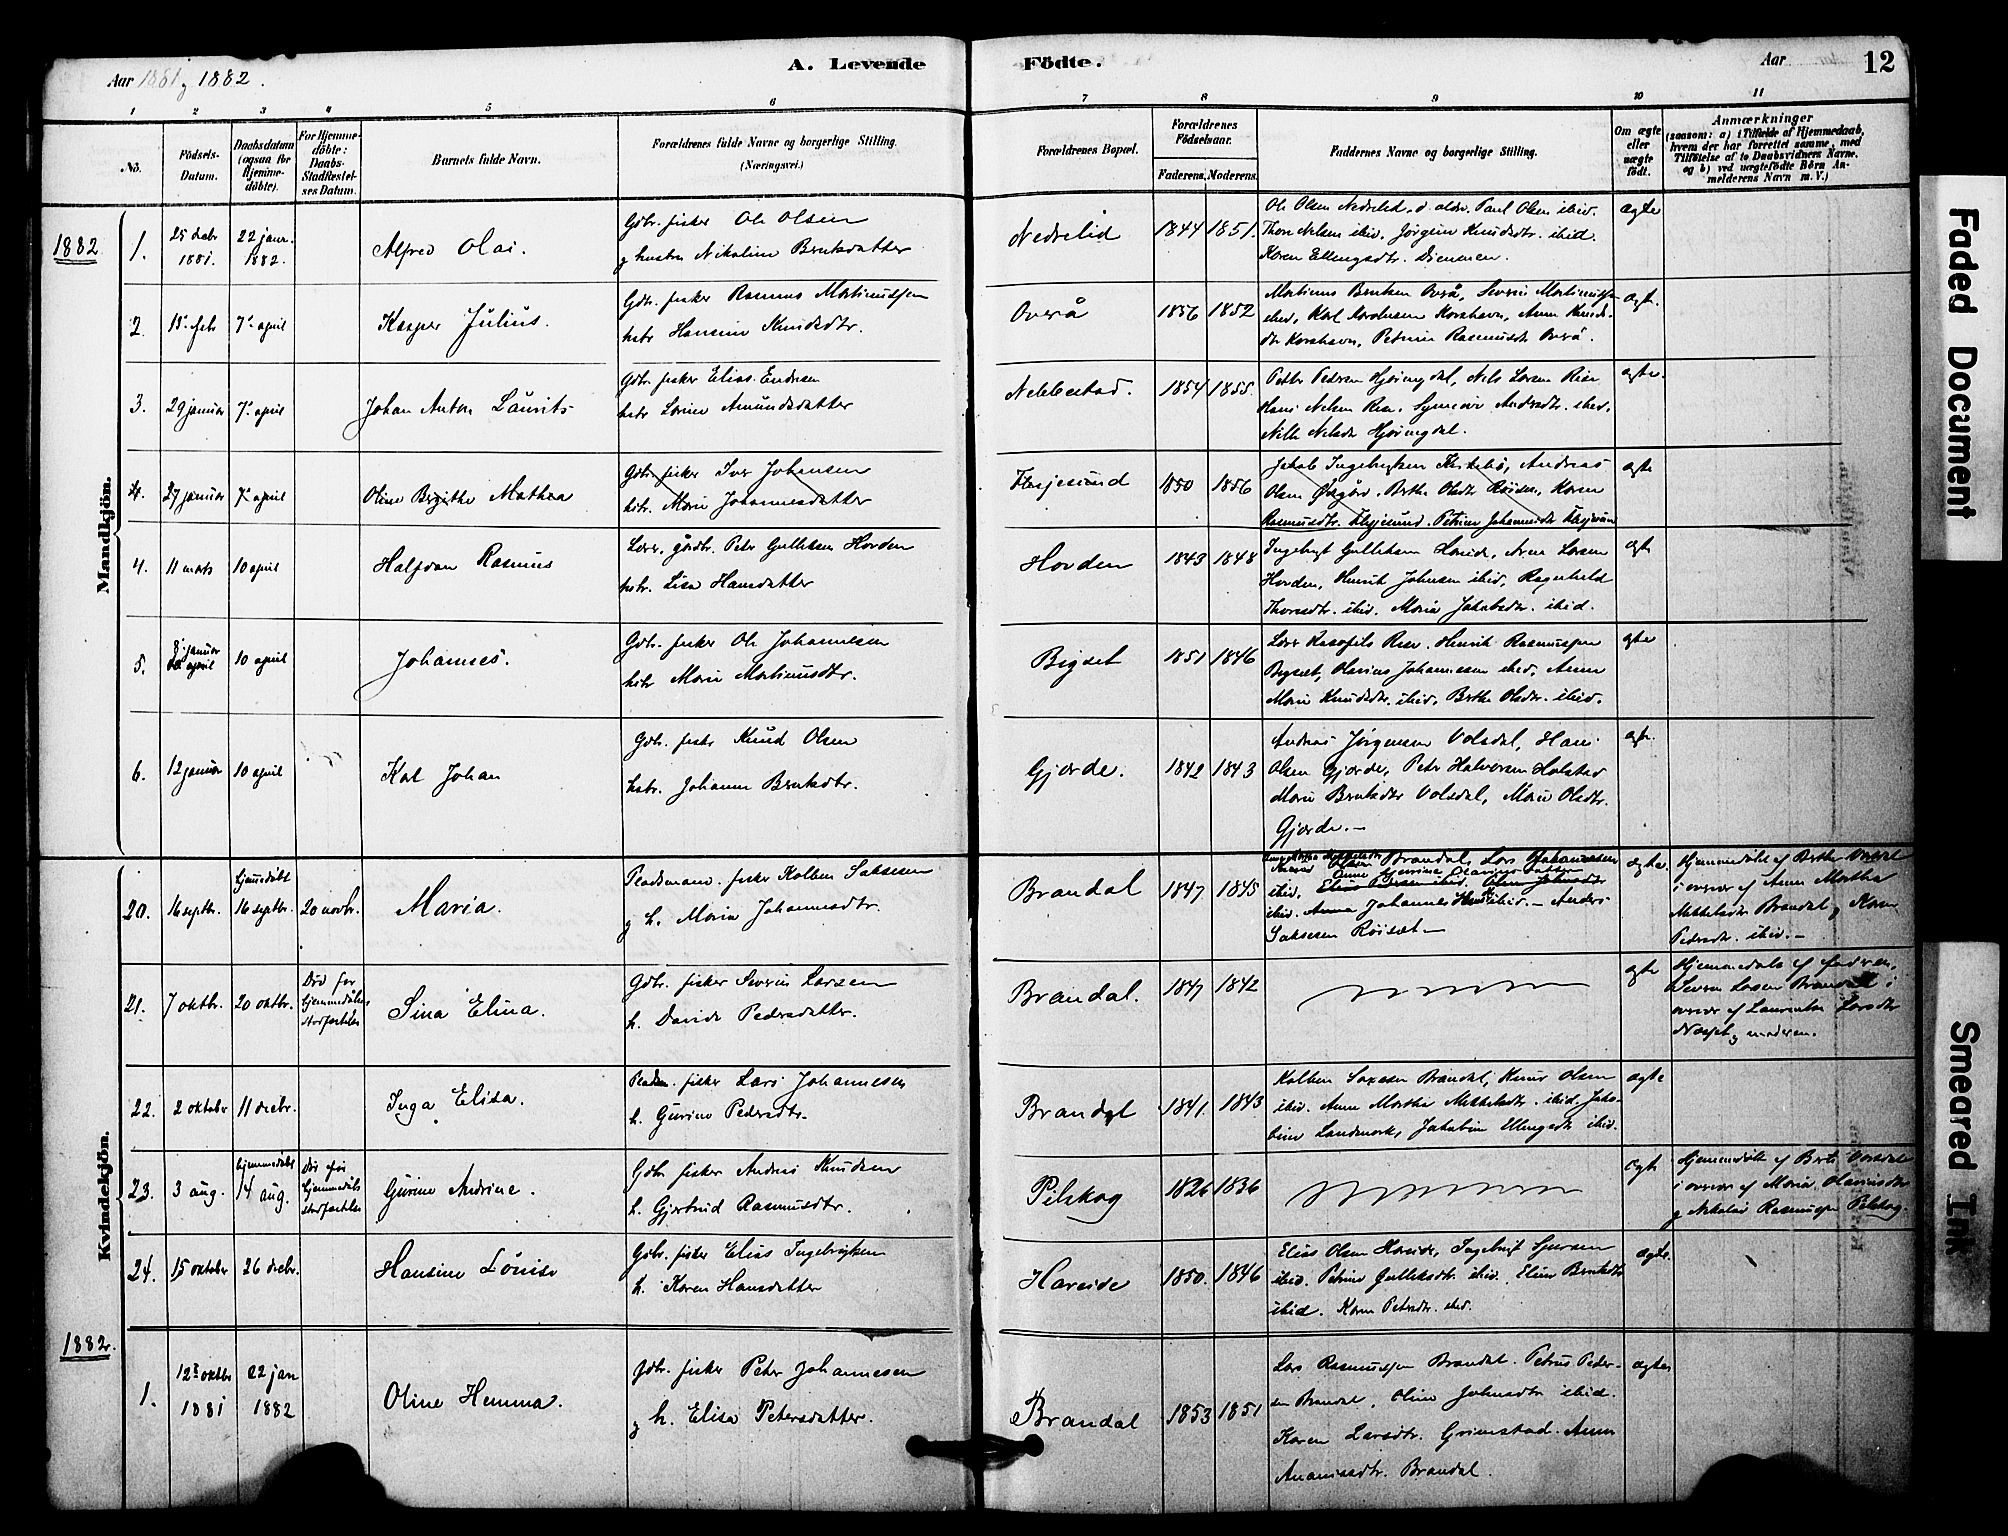 Aar 1881 og 1882.
A. Levende Födte.
Aar
12
1 2 3 4 5 6 7 8 9 10 11
No.
Födsels-Datum.
Daabsdatum (ogsaa for Hjemmedöbte).
For Hjemmedöbte: Daabs-Stadfæstelses Datum.
Barnets fulde Navn.
Forældrenes fulde Navne og borgerlige Stilling.
(Næringsvei.)
Forældrenes Bopæl.
Forældrenes Födselsaar.
Faderens. Moderens.
Faddernes Navne og borgerlige Stilling.
Om ægte eller uægte födt.
Anmærkninger
(saasom: a) i Tilfælde af Hjemmedaab, hvem der har forrettet samme, med Tilföielse af to Daabsvidners Navne, og b) ved uægtefödte Börn Anmelderens Navn m. V.)
Mandkjön.
1882
1. 25 decbr 1881. 22 janr. 1882. Alfred Olai.
Gdbr. fisker Ole Olsen
g hustru Nikoline Berntsdatter
Nedrelid 1844 1851.
Ole Olsen Nedrelid, Paul Olsen ibid.
Thore Nilsen ibid. Jørgine Knudsdtr. ibid.
Karen Ellingsdtr. Dimmen.
ægte
2. 15 feb 7de april Kasper Julius.
Gdbr. fisker Rasmus Martinussen
hstr Hansine Knudsdtr.
Overå 1856 1852
Martinus Berntsen Overå, Severin Martinussen
ibid, Karl Korshavn, Anne Knuds-
dtr Korshavn, Petrine Rasmusdtr Overå.
ægte.
3. 29 januar 7de april Johan Anton Laurits
Gdbr. fisker Elias Endresen
hstr Lovise Amundsdatter
Nebbestad. 1854 1855.
Petter Pedersen Hjøringdal, Nils Larsen Rise
Hans Nilsen Rise, Andrsdtr. ibid.
Nille Nilsdtr Hjøringdal.
ægte.
4. 27 januar 7de april Oline Birgithe Mathea
Gdbr. fisker Iver Johansen
hstr. Marie Johannesdatter
Flesjesund 1850 1856
Jakob Ingebrigtsen Kirkebø, Andreas
Olsen Østgård, Berthe Olsdtr Røisen, Karen
Rasmusdtr. Flesjesund. Petrine Johannesdtr Flesjesund
ægte
4. 11 marts 10 april Halfdan Rasmus
Lærer, gårdbr. Petr Gulliksen Hovden
hstr. Lisa Hansdatter
Hovden 1843 1848
Ingebrigt Gulliksen Hareide, Arne Larsen
Hovden, Henrik Johnsen ibid, Ragnhild
Thorsdtr. ibid. Maria Jakobsdtr. ibid.
ægte
5. 8 januar april 10 april Johannes.
Gdbr. fisker Ole Johannesen
hstr Marie Martinusdtr.
Bigset 1851 1846
Lars Rasmus Rise, Henrik Rasmussen
Bigset, Olavius Johannessen ibid, Anne
Marie Knudsdtr. ibid, Berthe Olsdtr. ibid.
ægte
6. 12 januar 10 april Karl Johan
Gdbr. fisker Knud Olsen
hstr. Johanne Berntsdtr.
Gjerde. 1842 1843
Andreas Jørgensen Volsdal, Hans
Olsen Gjerde, Petr Halvorsen Holstad
Marie Berntsdtr Volsdal, Marie Olsdtr.
Gjerde.—
ægte.
Kvindekjön.
20. 16 septbr. hjemmedøbt 16 septbr. 20 novbr. Maria.
Pladsmand. fisker Kolben Saksesen
g h. Maria Johannesdtr.
Brandal 1847 1845
Olsen Brandal, Lars Johannessen
ibid, Elias Pedersen ibid.
ibid. Anna Johannes ibid.— Anders
Saksesen Røiset—
ægte.
Hjemmedøbt af Berthe
i overvær af Anne Martha
Mikkelsdtr Brandal og Karen
Pedersdtr. ibid.—
21. 7 oktbr. 20 oktbr. Død før hjemmedåbens stadfæstelse Sina Elina.
Gdbr. fisker Severin Larsen
h. Davida Pedersdatter.
Brandal. 1847 1842
ægte
Hjemmedøbt af faderen,
Severin Larsen Brandal i
overvær af Laurentse Larsdtr
g moderen.
22. 2 oktober 11 decbr. Inga Elisa.
Pladsm. fisker Lars Johannesen
h. Gurine Pedersdtr.
Brandal 1841. 1843
Kolben Saxesen Brandal, Knud Olsen
ibid. Anne Martha Mikkelsdtr. ibid. Jako-
bine Landmark, Jakobine Ellingsdtr ibid.
ægte
23. 3 aug. hjemmedøbt 14 aug. Død før hjemmedåbs stadfæstelse Gurine Andrine.
Gdbr. fisker Andreas Knudsen
h. Gjertrud Rasmusdtr.
Pilskog 1826 1836
ægte
Hjemmedøbt af Berte
i overvær af Maria Olavsdtr
g Nikolai Rasmussen Pilskog.
24. 15 oktober 26 decbr. Hansine Lovise
Gdbr. fisker Elias Ingebrigtsen
h. Karen Hansdatter
Hareide 1850. 1846
Elias Olsen Hareide, Ingebrigt Sjursen
ibid. Petrine Gulliksdtr. ibid, Eline Berntsdtr
ibid. Karen Petersdtr. ibid.
ægte.
1882.
1. 12te oktbr 1881 22 jan 1882 Oline Hemma.
Gdbr. fisker Peter Johannesen
g h. Elisa Petersdatter.
Brandal 1853 1851
Lars Rasmussen Brandal. Petrus Peder-
sen Brandal, Oline Johnsdtr ibid.
Karen Larsdtr. Grimstad. Anne
Ananiasdtr. Brandal.
ægte
Faded Document
Smeared Ink